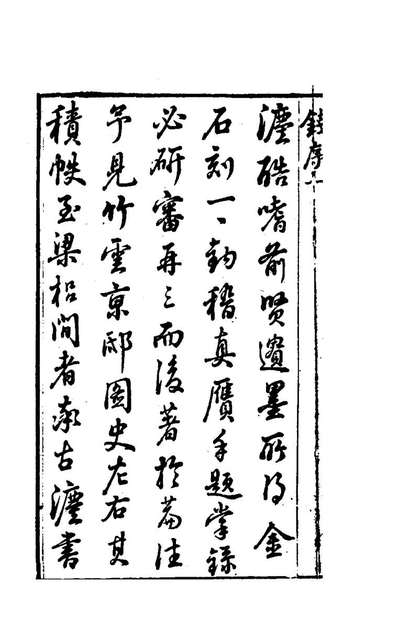 錢序二
瀍酷嗜前賢遺墨所得金
石刻一一鉤稽真贗手題掌錄
必研審再三而後著於篇往
予見竹雲京邸圖史左右其
積帙至梁梠間者率古瀍書